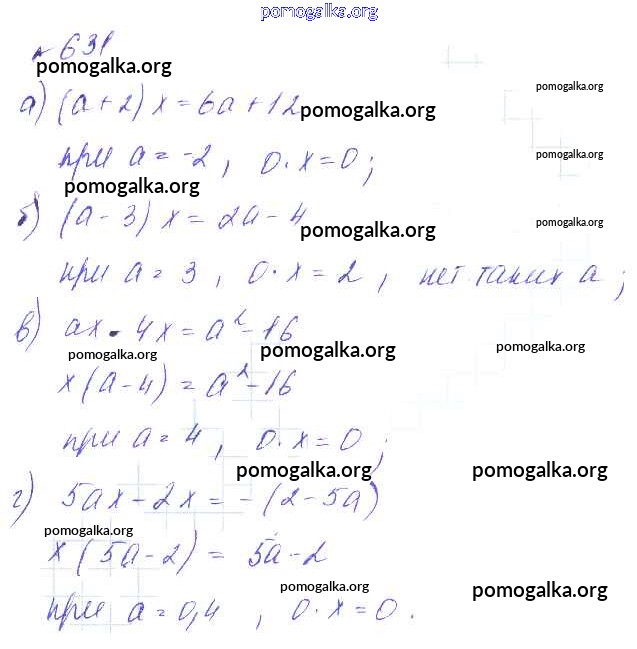 pomogalka.org
№ 631
pomogalka.org
pomogalka.org
а) (a+2)x = 6a+12
pomogalka.org
при a = -2, 0·x=0;
pomogalka.org
pomogalka.org
б) (a-3)x = 2a-4
pomogalka.org
pomogalka.org
при a = 3, 0·x = 2, нет таких a;
в) ax - 4x = a²-16
pomogalka.org
pomogalka.org
pomogalka.org
x(a-4) = a²-16
при a = 4, 0·x = 0;
pomogalka.org
pomogalka.org
г) 5ax-2x = -(2-5a)
pomogalka.org
x(5a-2) = 5a-2
pomogalka.org
pomogalka.org
при a = 0,4, 0·x = 0.